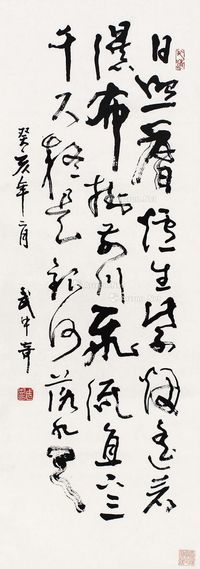 日照香爐生紫烟遥看
瀑布掛前川飛流直下三
千尺疑是銀河落九天
癸亥年二月 武中奇